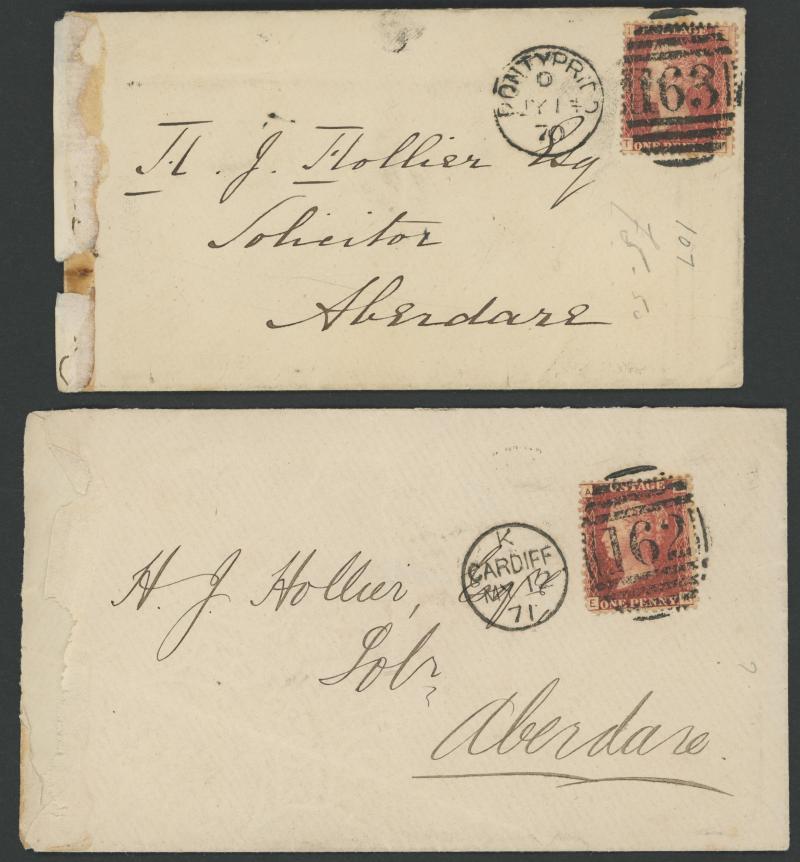 PONTYPRIDD
O
JY 14
70
163
ONE PENNY
H. J. Hollier Esq
Solicitor
Aberdare
107
POSTAGE
162
E ONE PENNY
K
CARDIFF
MY 12
71
H. J. Hollier, Esqre
Solr
Aberdare.